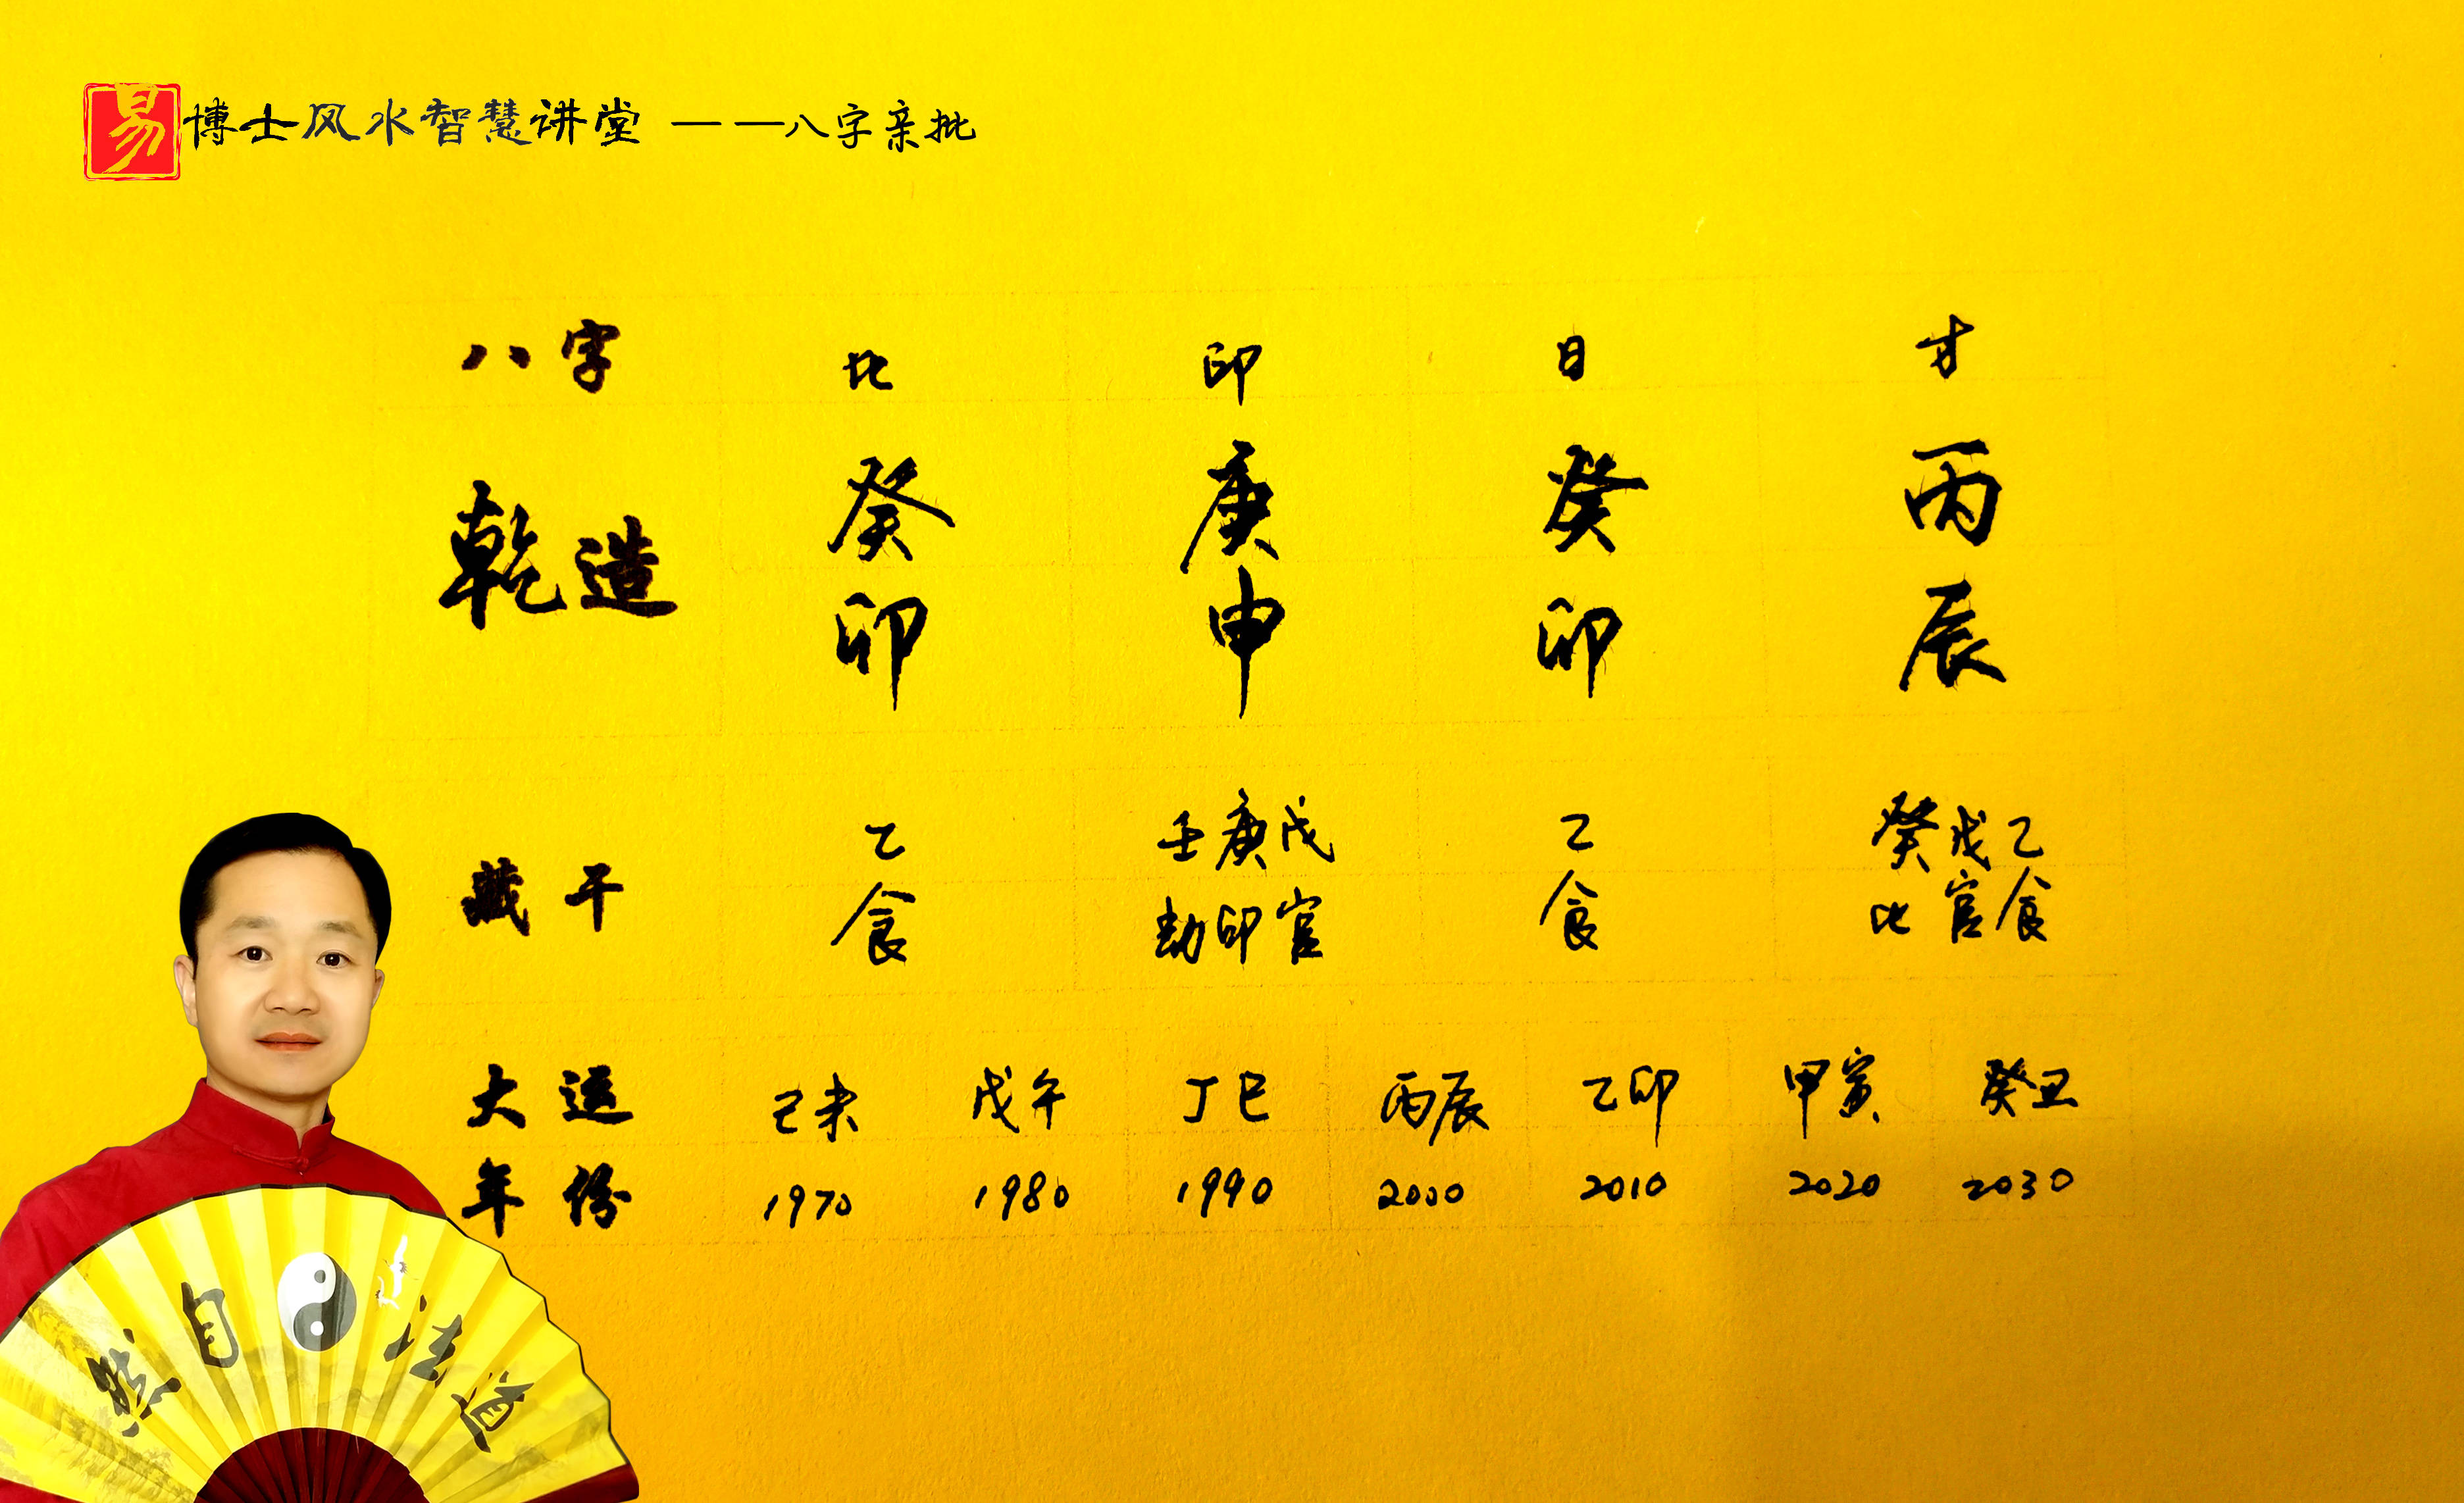 易博士风水智慧讲堂 ——八字亲批
八字 比 印 日 才
乾造 癸 庚 癸 丙
卯 申 卯 辰
藏干 乙 壬庚戊 乙 癸戊乙
食 劫印官 食 比官食
大运 己未 戊午 丁巳 丙辰 乙卯 甲寅 癸丑
年份 1970 1980 1990 2000 2010 2020 2030
然自法道